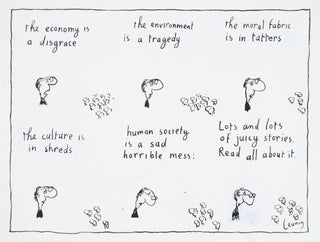 the economy is
a disgrace
the environment
is a tragedy
the moral fabric
is in tatters
the culture is
in shreds
human society
is a sad
horrible mess:
Lots and lots
of juicy stories.
Read all about it.
Leunig